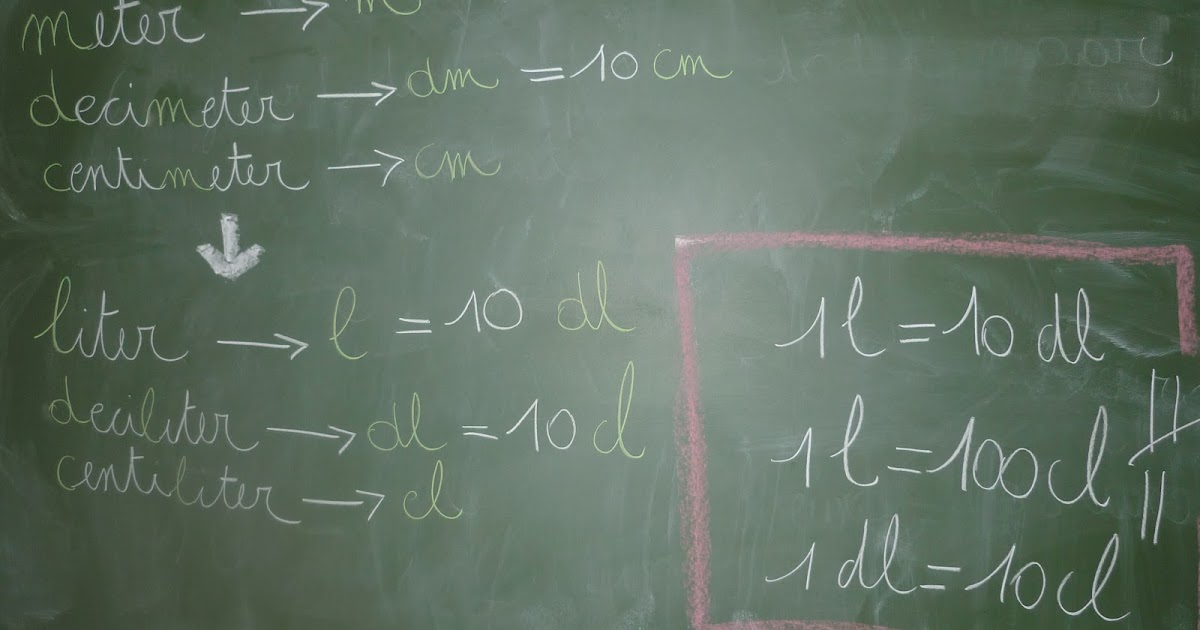 meter → m
decimeter → dm = 10 cm
centimeter → cm
liter → l = 10 dl
deciliter → dl = 10 cl
centiliter → cl
1 l = 10 dl
1 l = 100 cl
1 dl = 10 cl